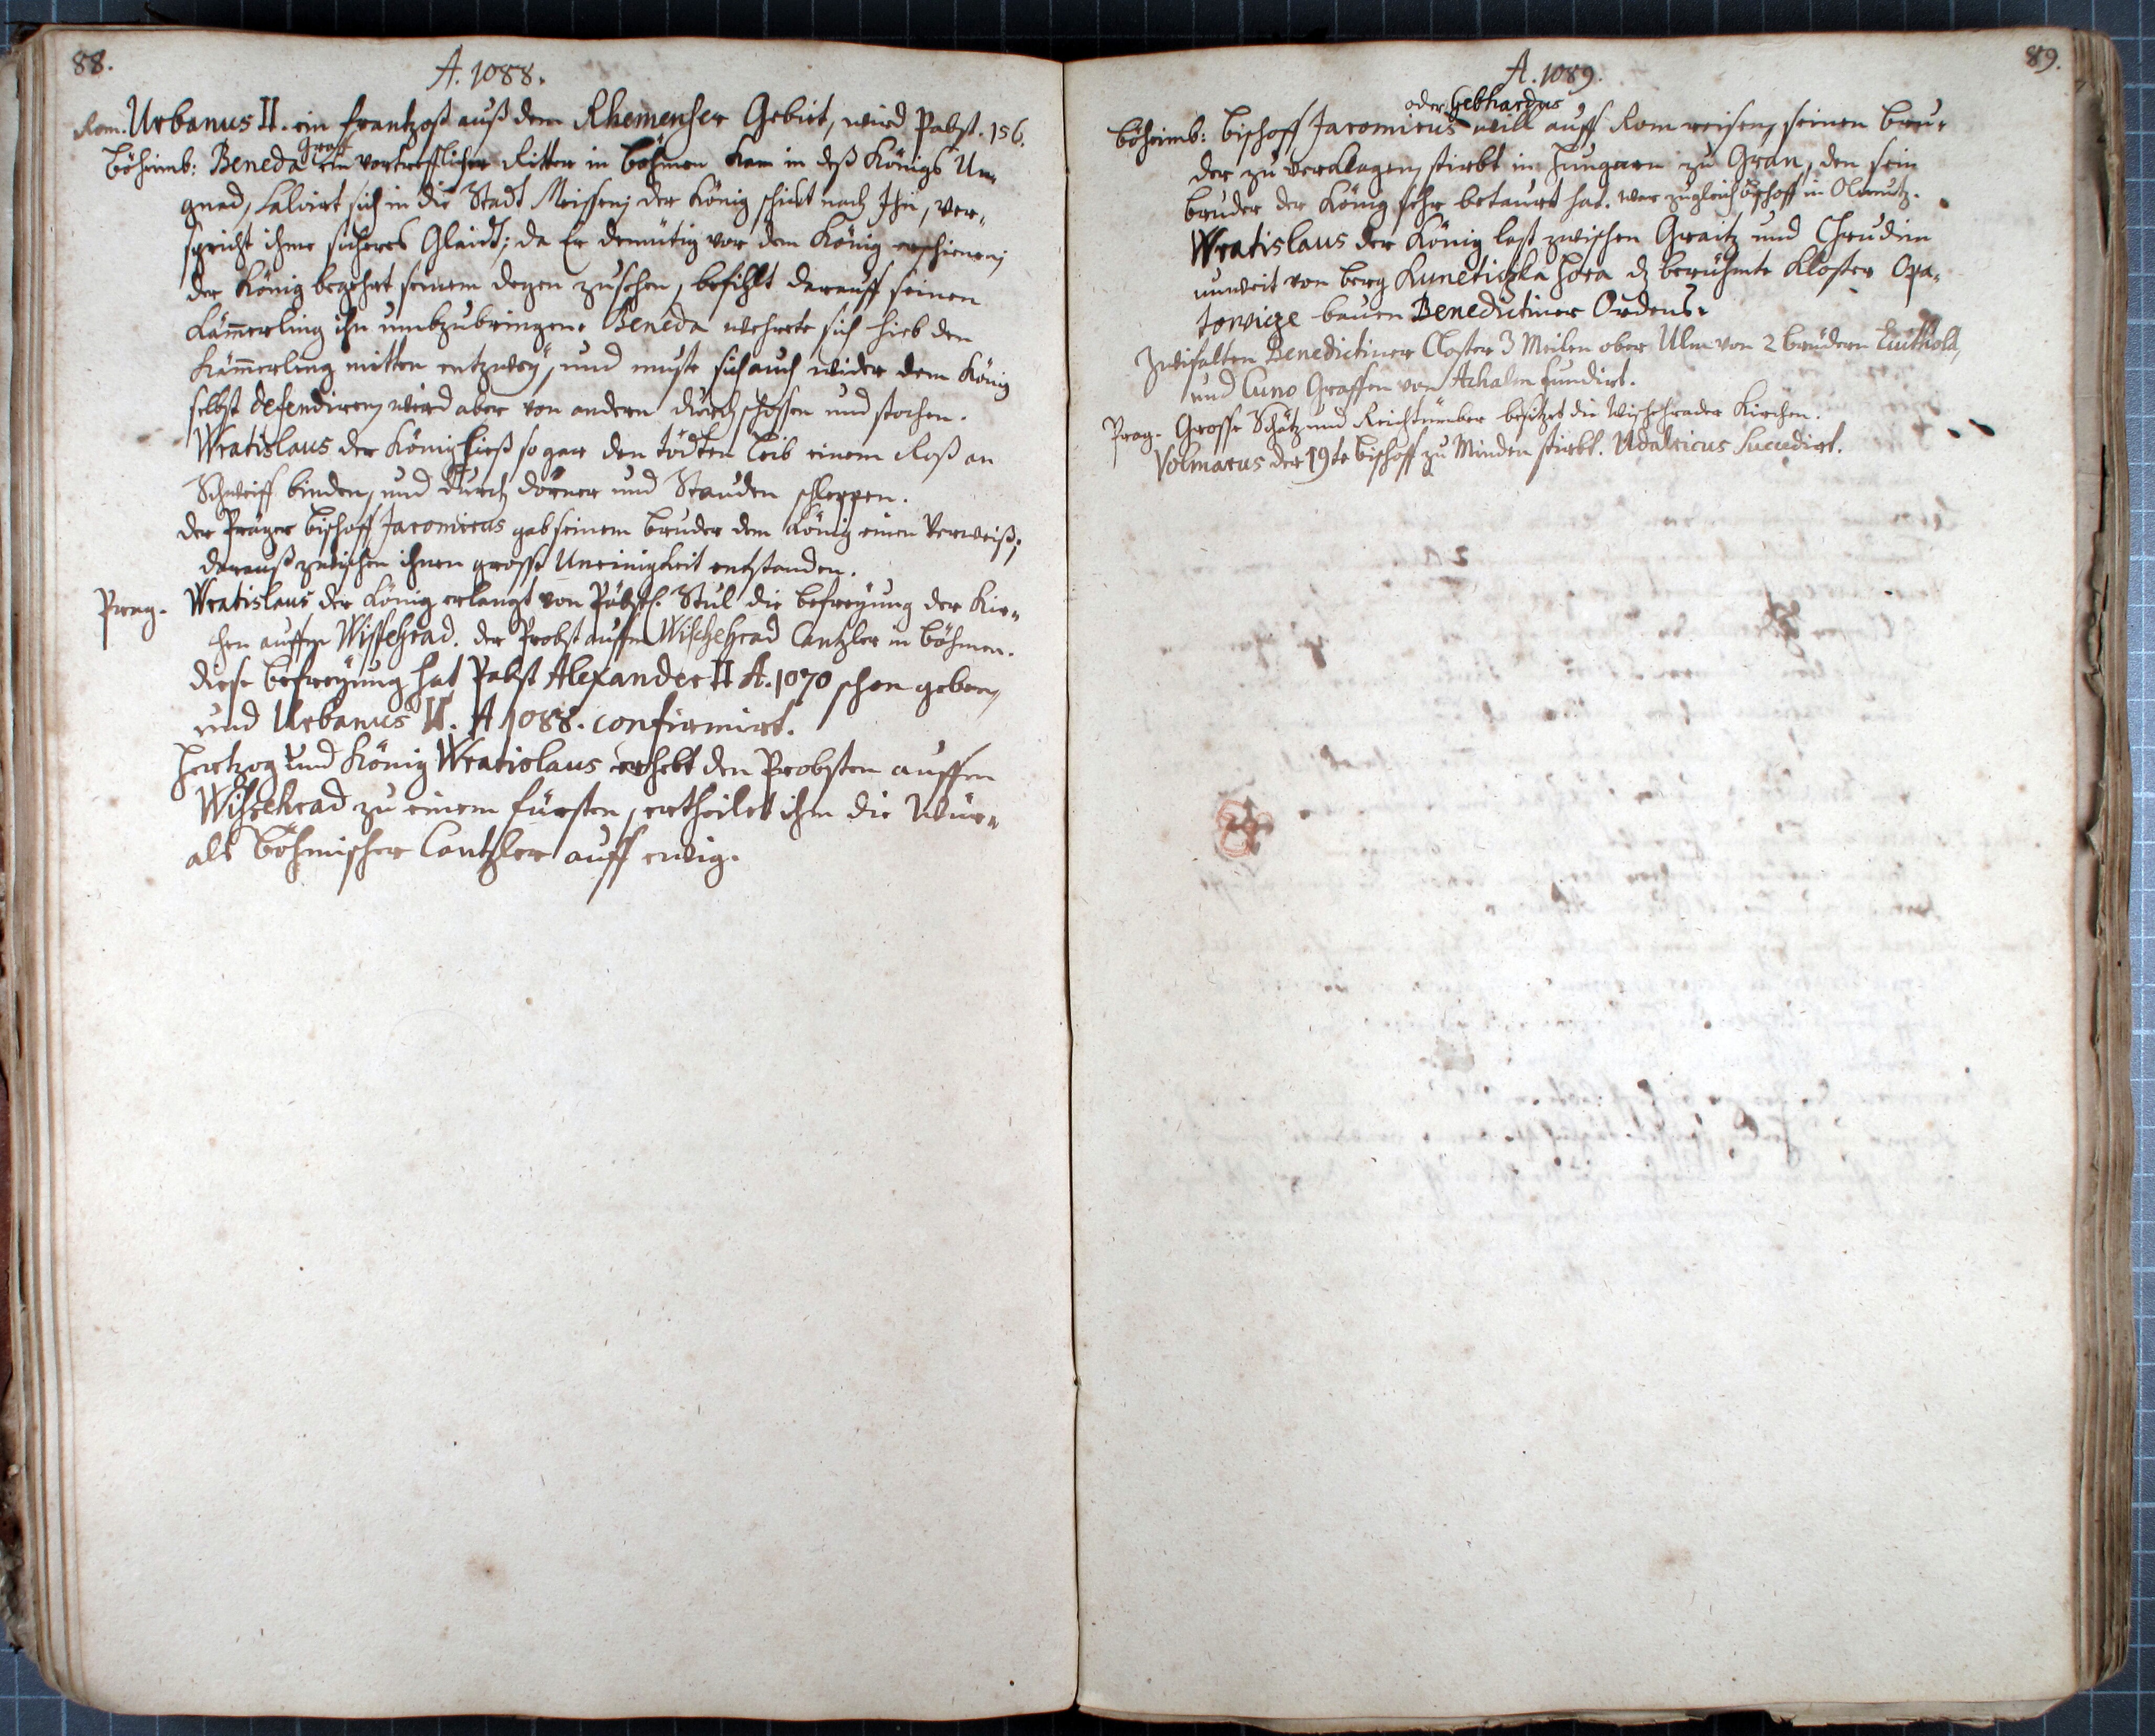 88.
A. 1088.
Rom. Urbanus II. ein frantzoß auß dem Rhemenser Gebiet, wird Pabst. 156.
Graff
Böheimb: Beneda ein vortrefflicher Ritter in Böhmen kam in deß Königs Un-
gnad, salvirt sich in die Stadt Meissen, der König schickt nach Ihn, ver-
spricht ihme sicheres Glaidt; da Er demütig vor dem König erschienen,
der König begehrt seinem degen zusehen, befihlt darauff seinen
Kämerling ihn umbzubringen. Beneda wehrete sich hieb den
Kämerling mitten entzwey, und muste sich auch wider dem König
selbst defendiren, wird aber von andern durch schossen und stochen.
Wratislaus der König hieß so gar den todten Leib einem Roß an
Schweiff binden, und durch dörner und Stauden schleppen.
der Prager Bischoff Jaromirus gab seinem bruder dem König einen Verweiß,
darauß zwischen ihnen grosse Uneinigkeit entstanden.
Prag. Wratislaus der König erlangt von Päbstl. Stul die befreyung der Kir-
chen auffm Wissehrad. der Probst auffm Wischehrad Cantzler in Böhmen.
diese befreyung hat Pabst Alexander II A. 1070 schon geben,
und Urbanus II. A 1088. confirmirt.
Hertzog und König Wratislaus erhebt den Probsten auffm
Wissehrad zu einem fürsten, ertheilet ihm die Wür-
als Böhmischer Cantzler auff ewig.
89.
A. 1089.
oder Gebhardus
Böheimb: Bischoff Jaromirus will auff Rom reisen, seinen bru-
der zu verklagen, stirbt in Hungarn zu Gran, den sein
bruder der König sehr betaurt hat. war zugleich Bischoff in Olmutz.
Wratislaus der König last zwischen Graitz und Chrudim
unweit von berg Kunetiszka hora dz berühmte Kloster Opa-
towicze bauen Benedictiner Ordens.
Zwifalten Benedictiner Closter 3 Meilen ober Ulm von 2 brüdern Luithold,
und Cuno Graffen von Achalm fundirt.
Prag. Grosse Schätz und Reichtümber besitzet die Wischehrader Kirchen.
Volmarus der 19te bischoff zu Minden stirbt. Udalricus succedirt.